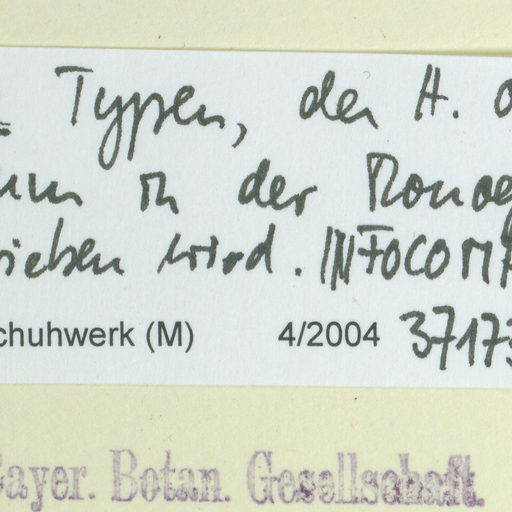 = Typen, der H. 
in der Monog
ieben wird. INFOCOMP
chuhwerk (M) 4/2004 37173
Bayer. Botan. Gesellschaft.